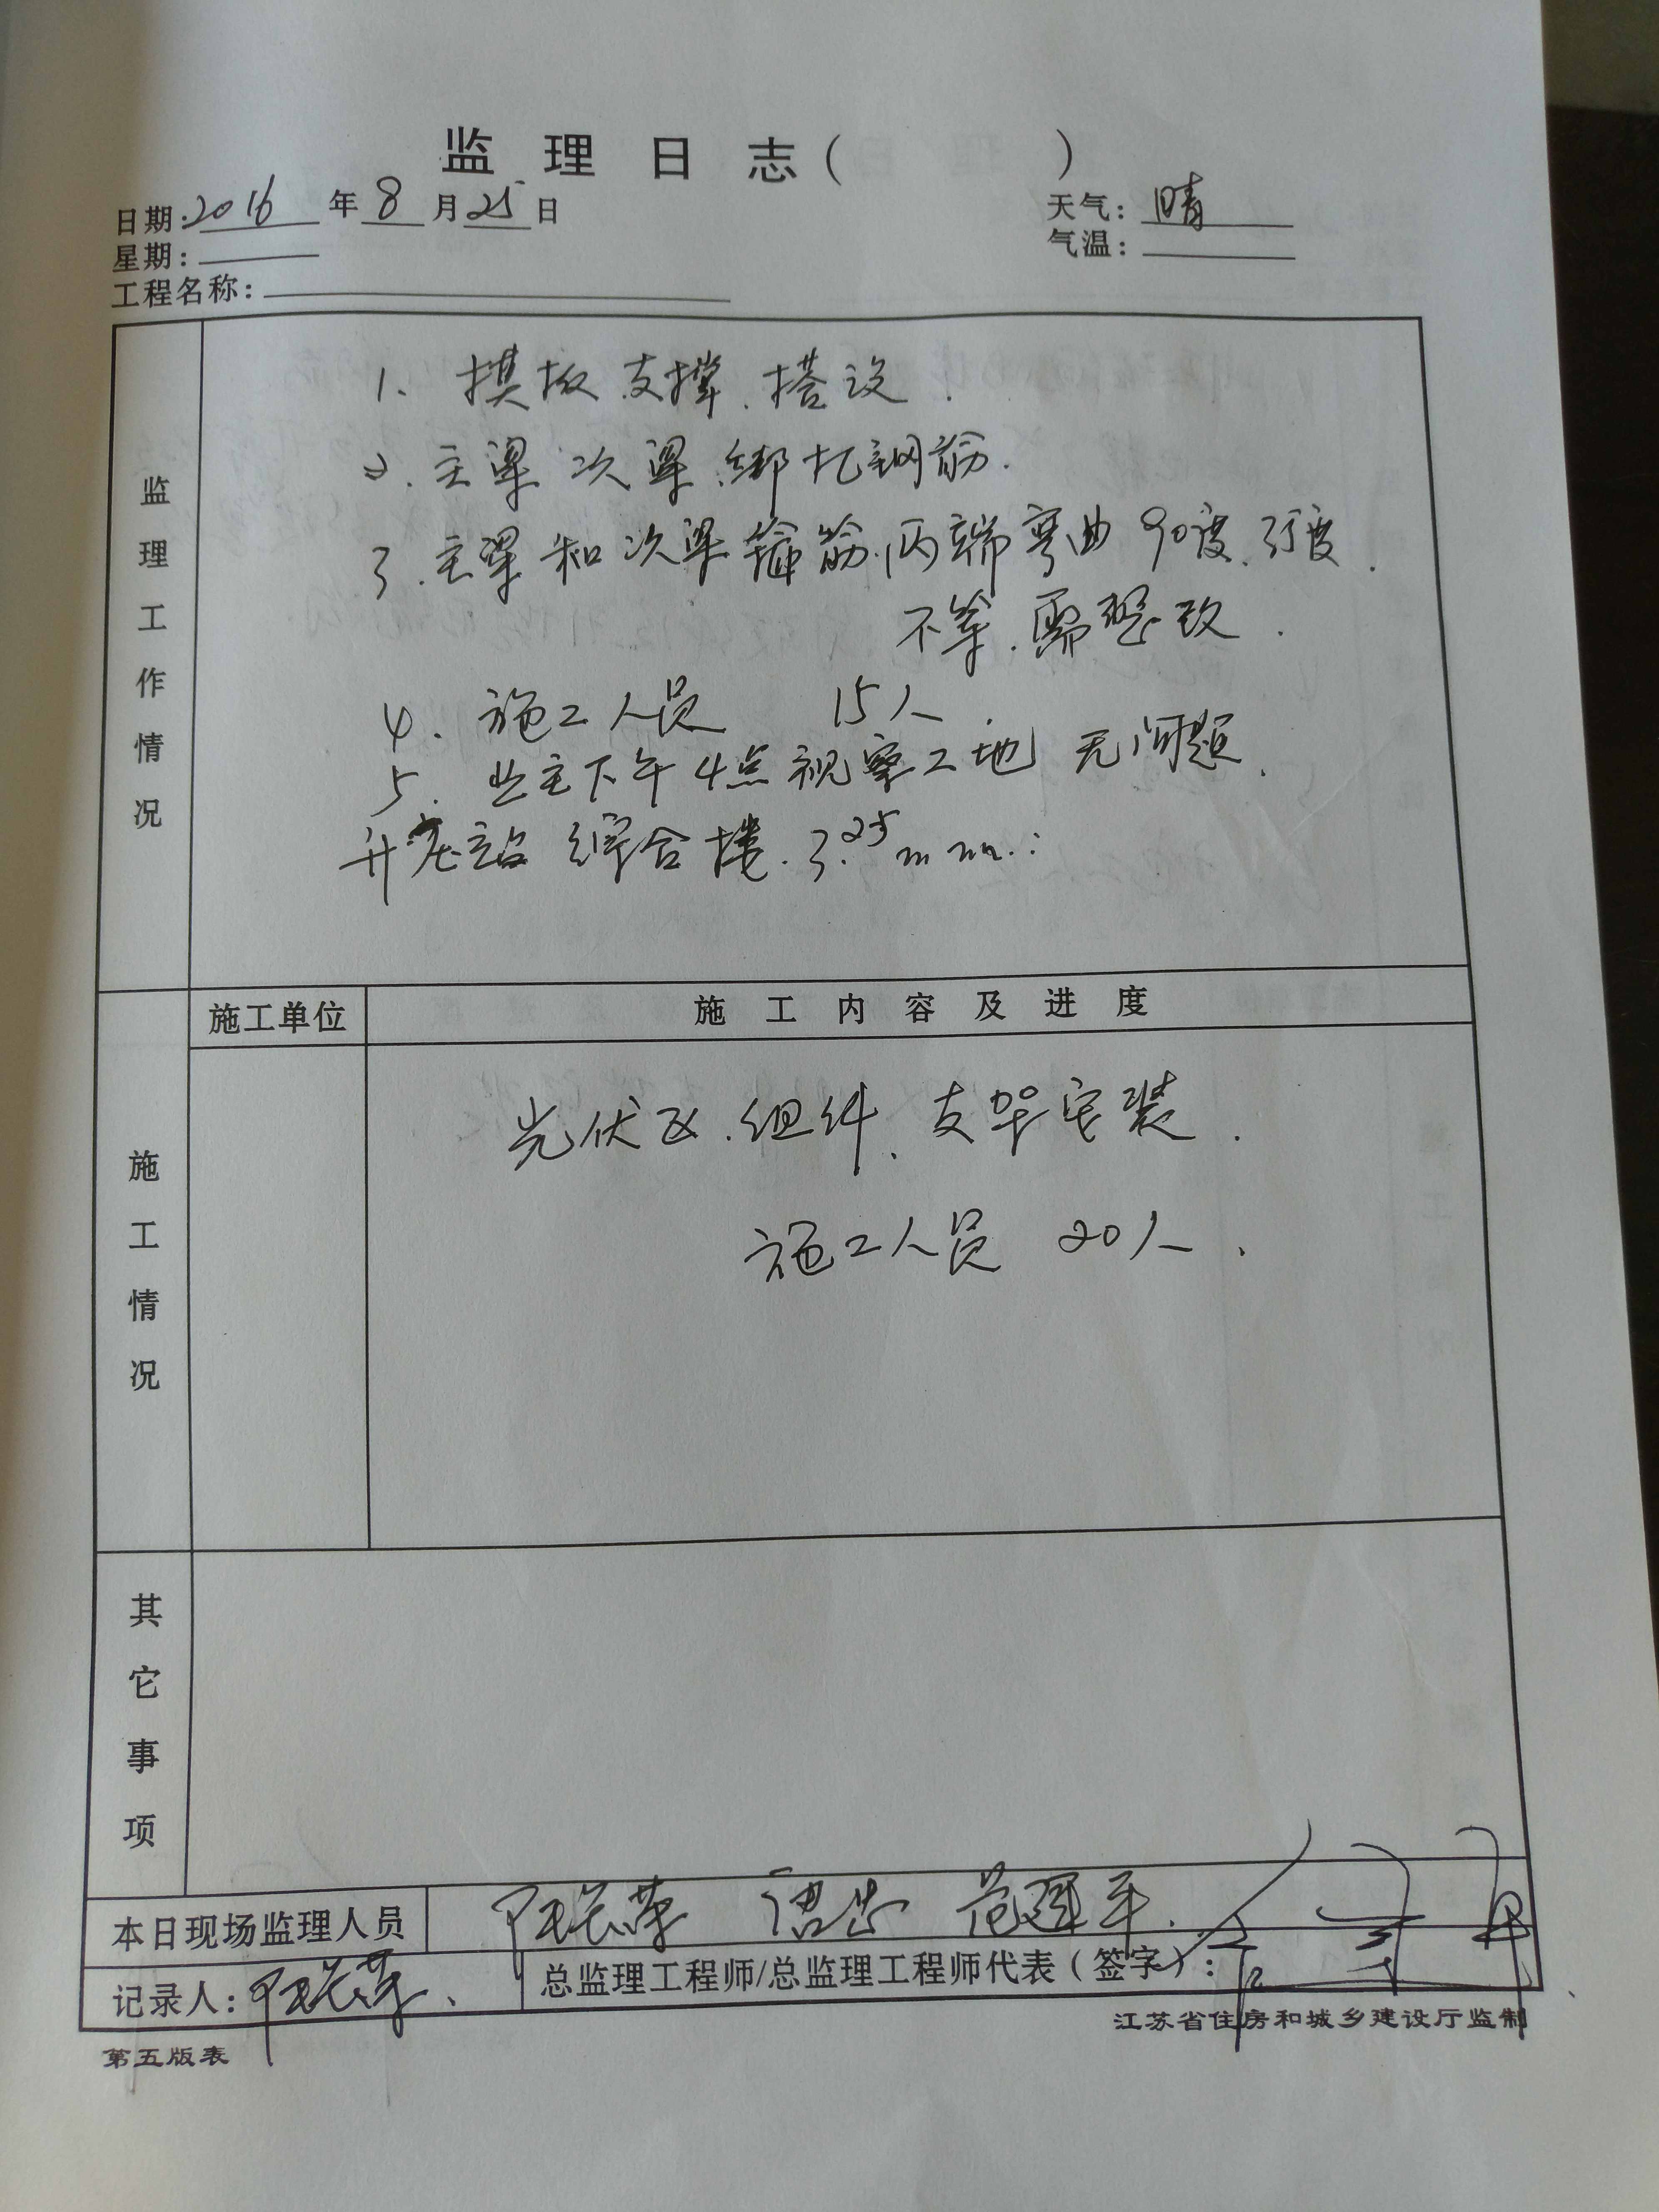 监 理 日 志 ( )
日期: 2016 年 8 月 25 日
天气: 晴
星期:
气温:
工程名称:
监理工作情况
1. 模板支撑.搭设.
2. 主梁次梁.绑扎钢筋.
3. 主梁和次梁箍筋.两端弯曲90度.
不等.需整改.
4. 施工人员 15人.
5. 业主下午4点视察工地 无问题.
升压站 综合楼. 3.25
施工单位
施 工 内 容 及 进 度
施工情况
光伏区.组件、支架安装.
施工人员 20人.
其它事项
本日现场监理人员 范建平.
记录人:
总监理工程师/总监理工程师代表(签字):
江苏省住房和城乡建设厅监制
第五版表